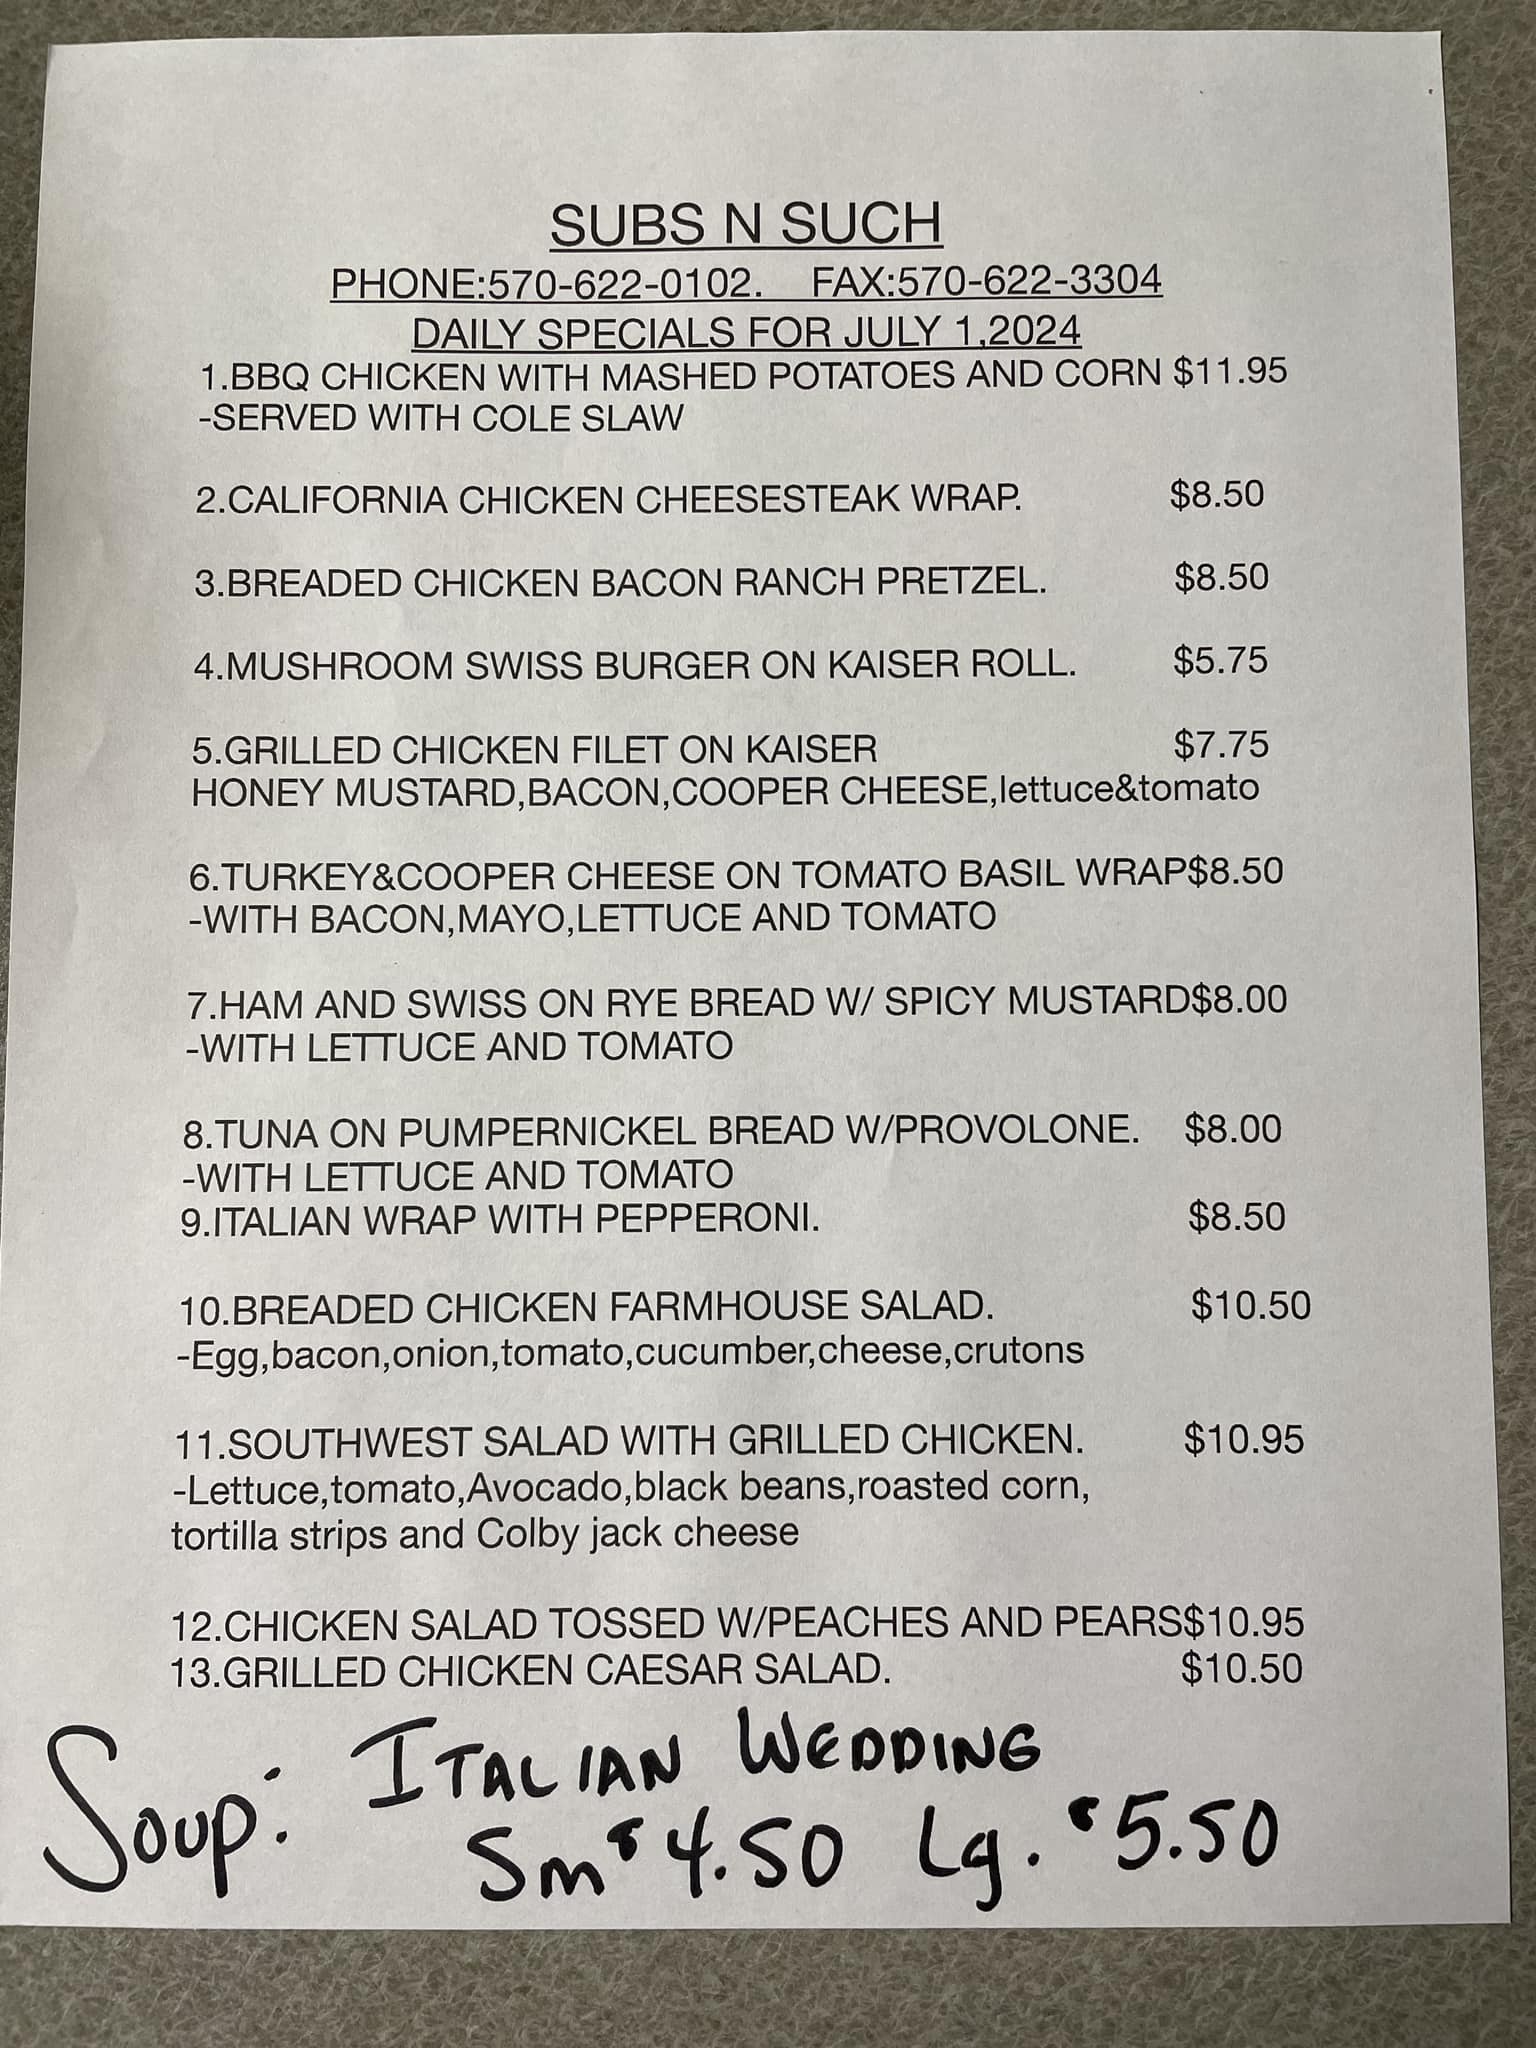 SUBS N SUCH
PHONE:570-622-0102. FAX:570-622-3304
DAILY SPECIALS FOR JULY 1,2024
1.BBQ CHICKEN WITH MASHED POTATOES AND CORN $11.95
-SERVED WITH COLE SLAW
2.CALIFORNIA CHICKEN CHEESESTEAK WRAP. $8.50
3.BREADED CHICKEN BACON RANCH PRETZEL. $8.50
4.MUSHROOM SWISS BURGER ON KAISER ROLL. $5.75
5.GRILLED CHICKEN FILET ON KAISER $7.75
HONEY MUSTARD,BACON,COOPER CHEESE,lettuce&tomato
6.TURKEY&COOPER CHEESE ON TOMATO BASIL WRAP$8.50
-WITH BACON,MAYO,LETTUCE AND TOMATO
7.HAM AND SWISS ON RYE BREAD W/ SPICY MUSTARD$8.00
-WITH LETTUCE AND TOMATO
8.TUNA ON PUMPERNICKEL BREAD W/PROVOLONE. $8.00
-WITH LETTUCE AND TOMATO
9.ITALIAN WRAP WITH PEPPERONI. $8.50
10.BREADED CHICKEN FARMHOUSE SALAD. $10.50
-Egg,bacon,onion,tomato,cucumber,cheese,crutons
11.SOUTHWEST SALAD WITH GRILLED CHICKEN. $10.95
-Lettuce,tomato,Avocado,black beans,roasted corn,
tortilla strips and Colby jack cheese
12.CHICKEN SALAD TOSSED W/PEACHES AND PEARS$10.95
13.GRILLED CHICKEN CAESAR SALAD. $10.50
Soup: ITALIAN WEDDING
Sm $4.50 Lg. $5.50